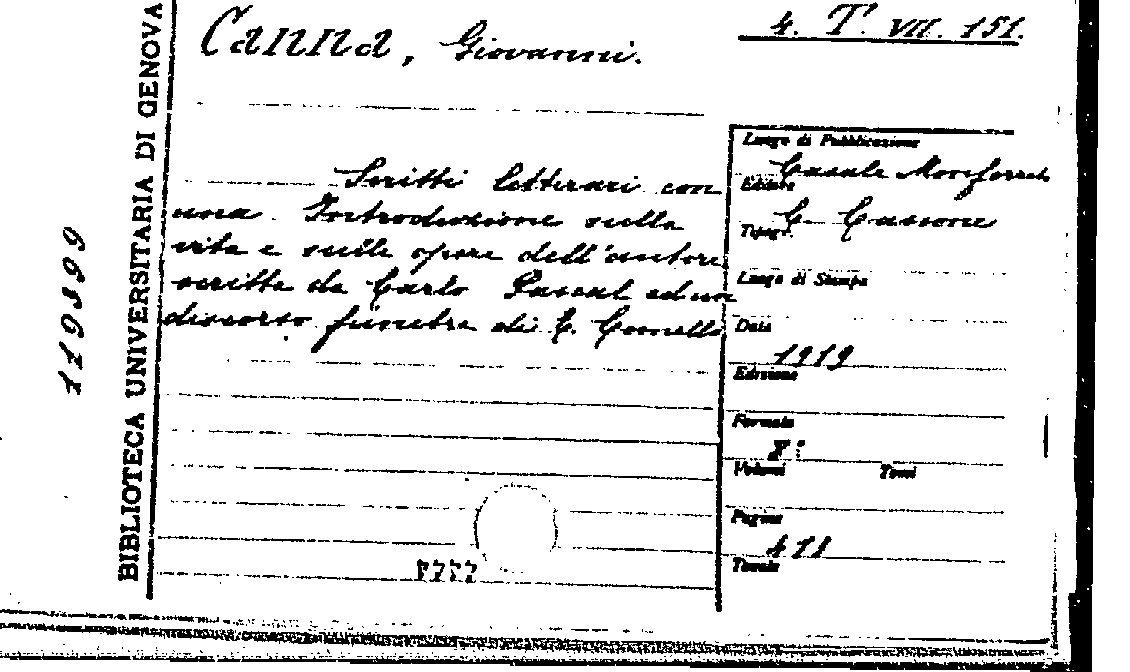 Canna, Giovanni.
4. T. VII. 151.
BIBLIOTECA UNIVERSITARIA DI GENOVA
119399
Scritti letterari con
una Introduzione sulla
vita e sulle opere dell'autore
scritta da Carlo Pascal ed un
discorso funebre di C. Comelli
Luogo di Pubblicazione
Casale Monferrato
Editore
C. Cassone
Tipogr.
Luogo di Stampa
Data
1919
Edizione
Formato
8°
Volumi Tomi
Pagine
471
Tavole